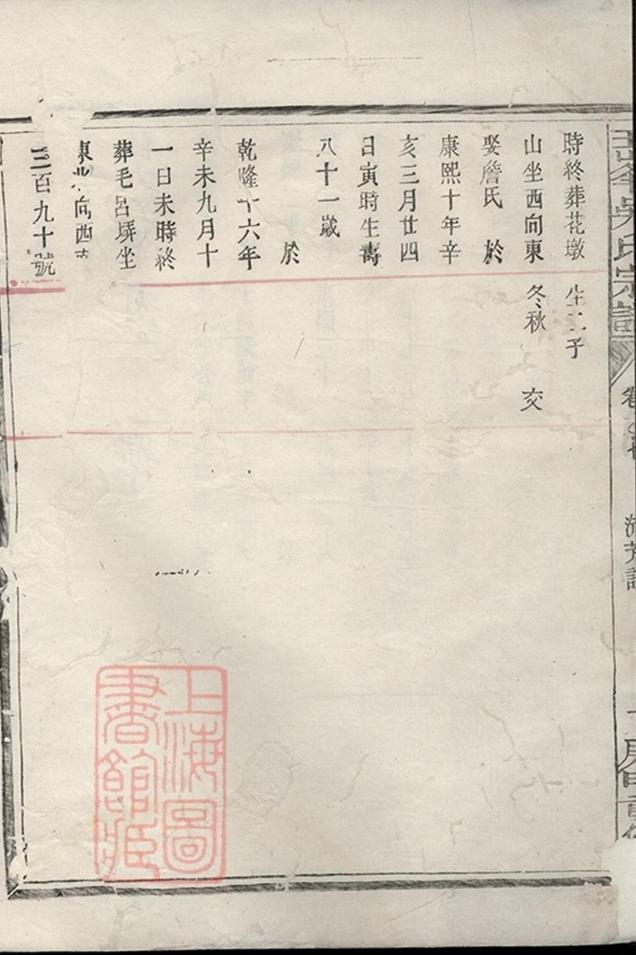 吳氏宗譜
卷
時終葬花墩
山坐西向東
娶詹氏 於
康熙十年辛
亥三月廿四
日寅時生壽
八十一歲
於
乾隆十六年
辛未九月十
一日未時終
葬毛呂塝坐
東 向西
三百九十號
生二子
冬秋 交
上海圖
書館藏